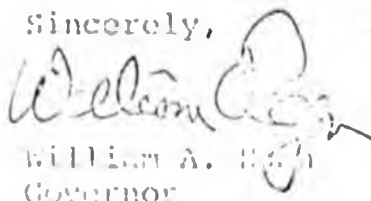 Sincerely,
William A.
William A.
Governor